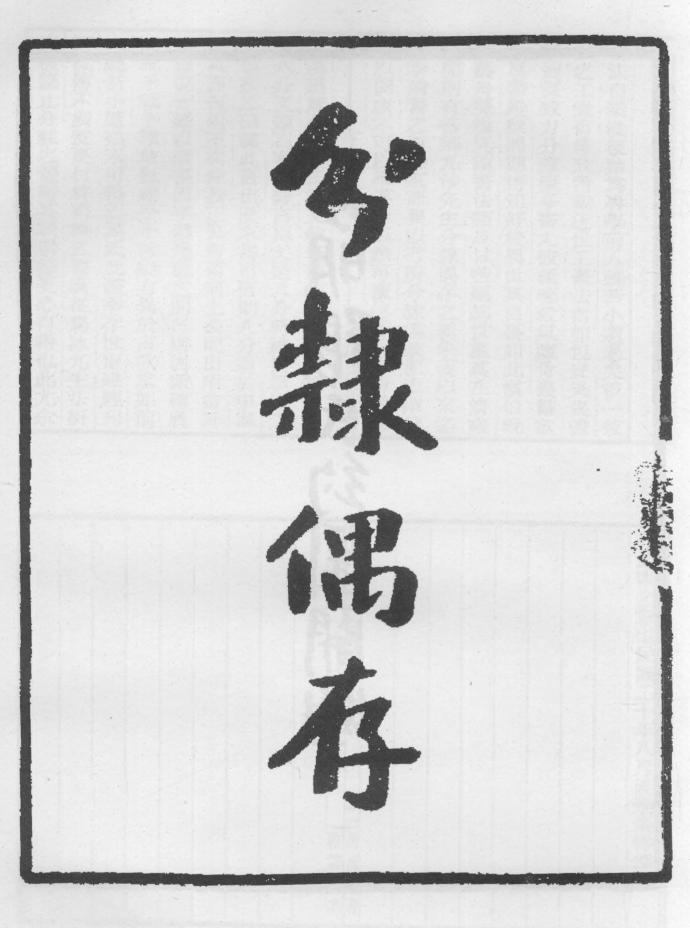 分隸偶存